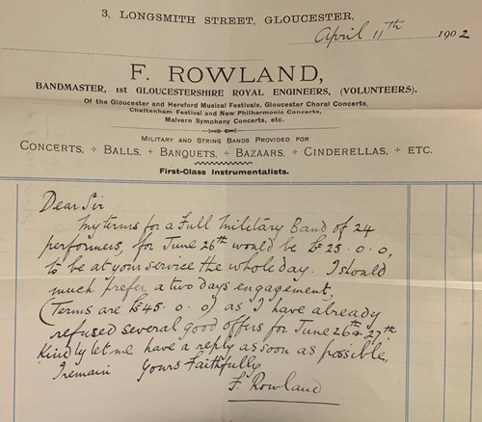 3, LONGSMITH STREET, GLOUCESTER,
April 11th 1902
F. ROWLAND,
BANDMASTER, 1st GLOUCESTERSHIRE ROYAL ENGINEERS, (VOLUNTEERS).
Of the Gloucester and Hereford Musical Festivals, Gloucester Choral Concerts,
Cheltenham Festival and New Philharmonic Concerts,
Malvern Symphony Concerts, etc.
MILITARY AND STRING BANDS PROVIDED FOR
CONCERTS, + BALLS, + BANQUETS, + BAZAARS, + CINDERELLAS, + ETC.
First-Class Instrumentalists.
Dear Sir
My terms for a Full Military Band of 24
performers, for June 26th would be £25.0.0,
to be at your service the whole day. I should
much prefer a two days engagement,
(Terms are £45.0.0) as I have already
refused several good offers for June 26th & 27th.
Kindly let me have a reply as soon as possible,
I remain Yours Faithfully
F. Rowland